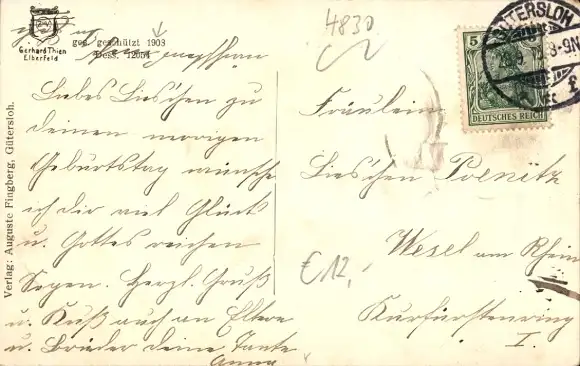 4830
GÜTERSLOH
Gerhard Thien
Elberfeld
ges. geschützt 1903
Dess. 12054
5
DEUTSCHES REICH
Liebes Lieschen zu
deinem morrigen
Geburtstag wünsche
ich dir viel Glück
u. Gottes reichen
Segen. Herzl. Gruß
u. Kuß auch an Eltern
u. Brüder deine Tante
Anna
Fräulein
Lieschen Poenitz
Wesel am Rhein
Kurfürstenring
I.
€12,-
Verlag: Auguste Fingberg, Gütersloh.